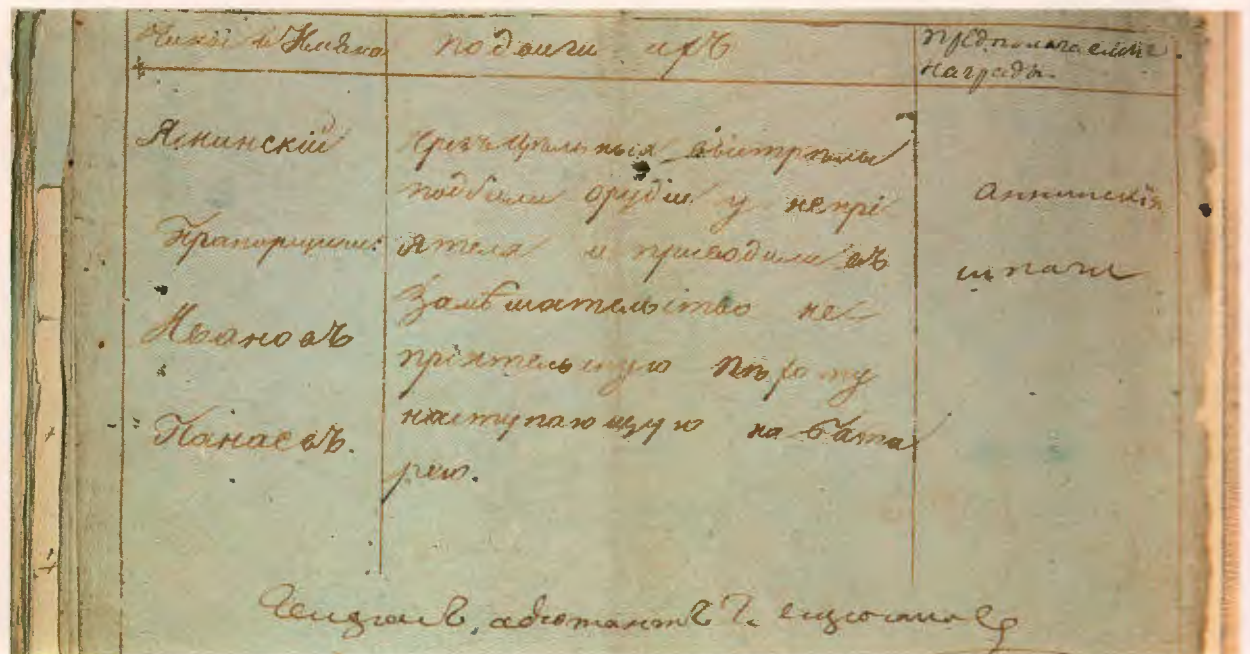 Чины и Имяна
подвиги ихъ
Предполагаемыя
награды.
Яснинскій
Прапорщики:
Ивановъ
Панаевъ.
чрезъ цѣльныя выстрѣлы
подбили орудіи у непрі
ятеля и приводили въ
замѣшательство не
пріятельскую пѣхоту
наступающую на бата
рею.
Аннинскія
шпаги
адъютантъ Г.